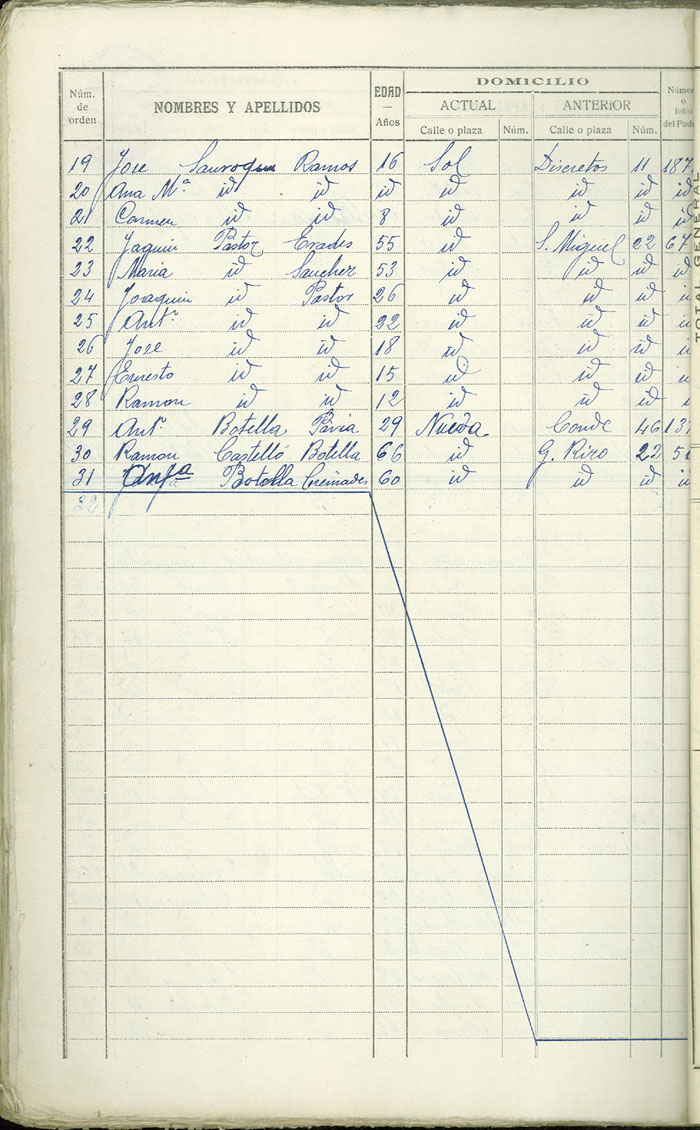 DOMICILIO
Núm. de orden NOMBRES Y APELLIDOS EDAD — Años ACTUAL ANTERIOR Número o folio del Pad
Calle o plaza Núm. Calle o plaza Núm.
19 Jose Ramos 16 Sol Discretos 11 187
20 Ana Mª id id id id id id id
21 Carmen id id 8 id id id id
22 Jaquin Pastor Erades 55 id S. Miguel 22 67
23 Maria id Sanchez 53 id id id id
24 Joaquin id Pastor 26 id id id i
25 Antº id id 22 id id id i
26 Jose id id 18 id id id i
27 Ernesto id id 15 id id id i
28 Ramon id id 12 id id id i
29 Antº Botella Pavia 29 Nueva Conde 46 131
30 Ramon Castelló Botella 66 id G. Riro 22 5
31 Anfª Botella Cremades 60 id id id i
TOTAL GENERAL